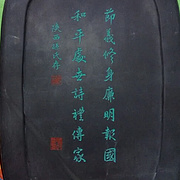 節義修身廉明報國
和平處世詩禮傳家